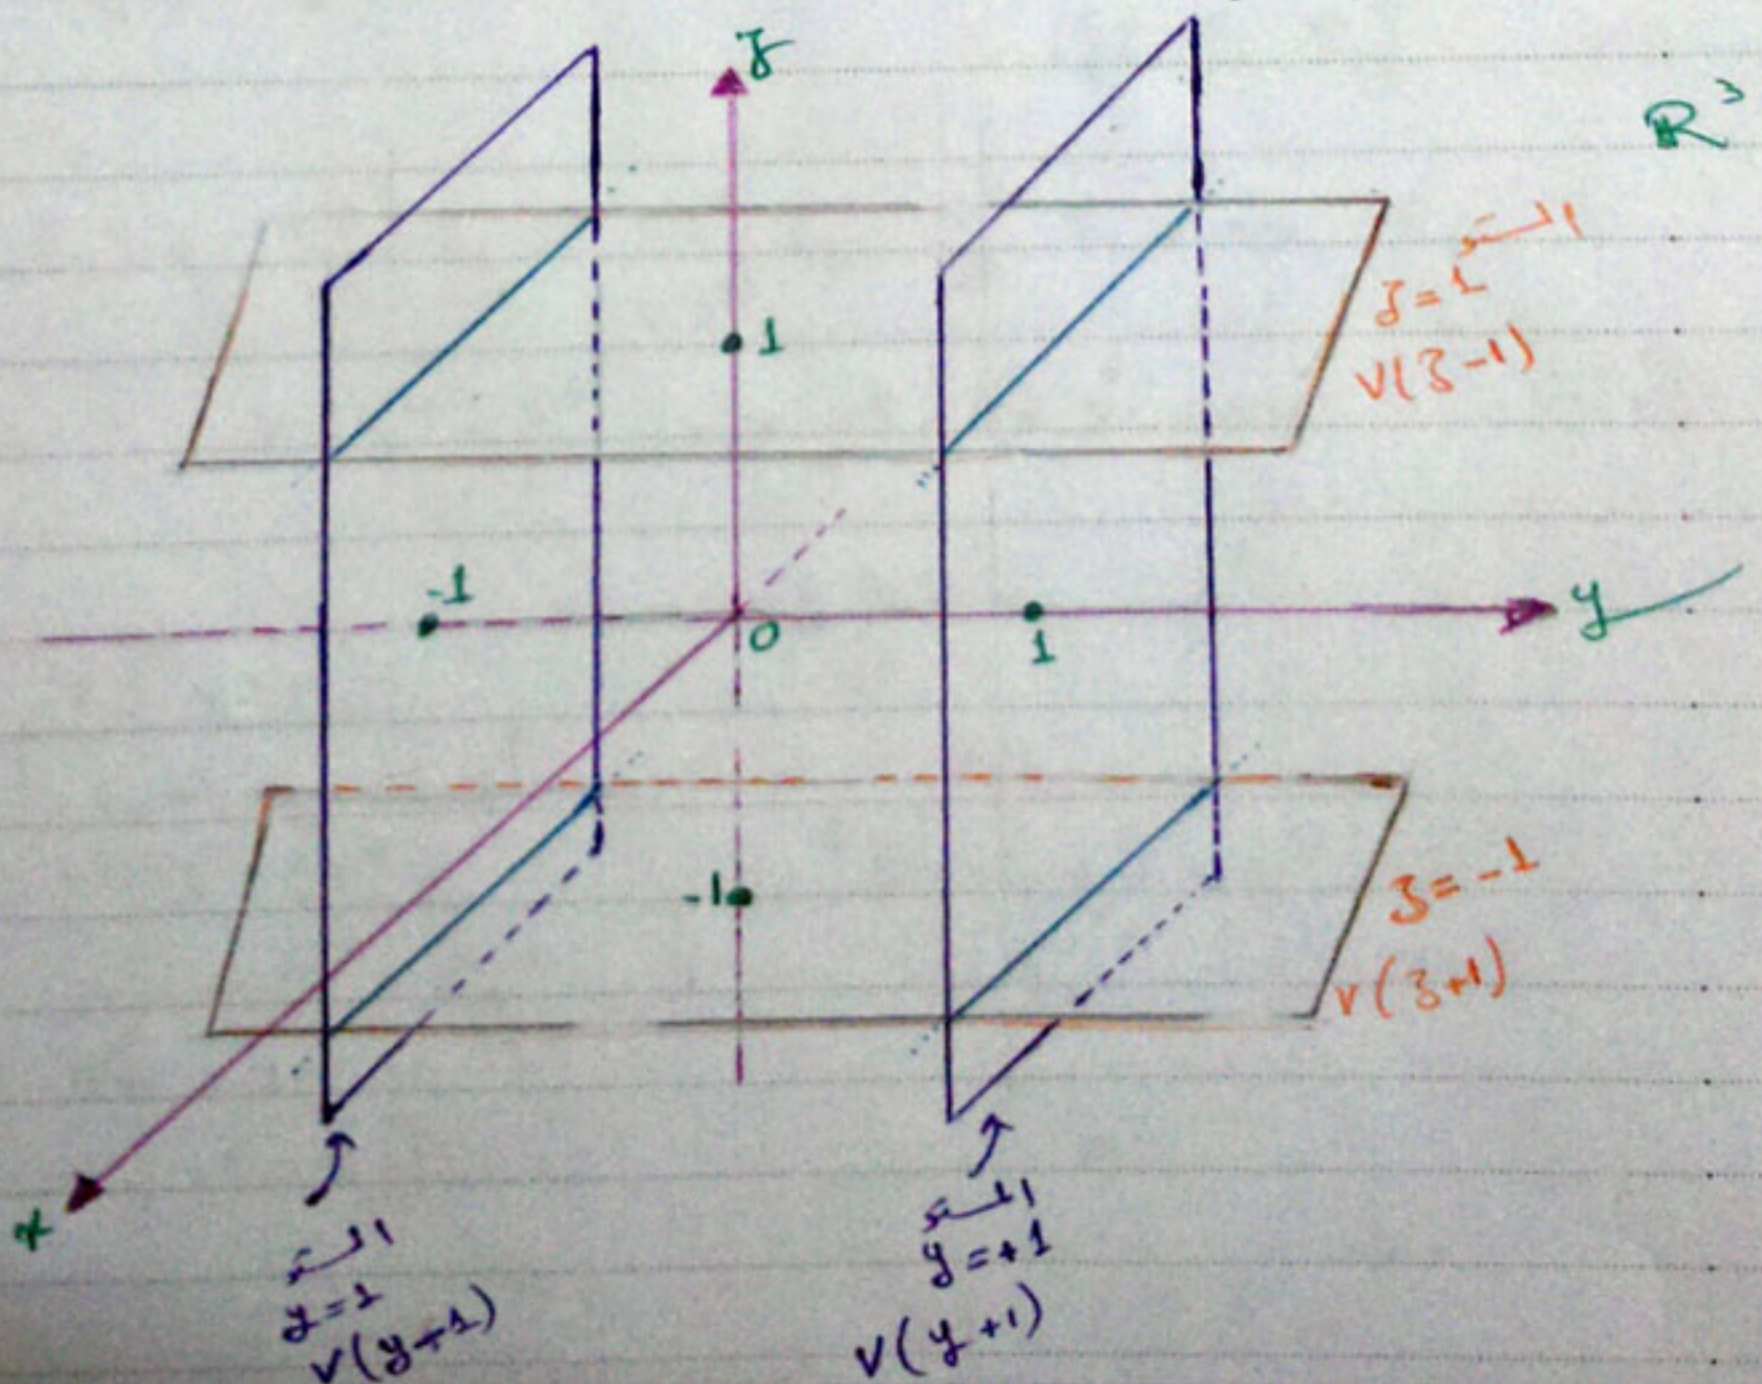 z
R³
المستو
z = 1
V(z-1)
1
-1
0
1
y
-1
z = -1
V(z+1)
x
المستو
y = 1
V(y+1)
المستو
y = +1
V(y+1)